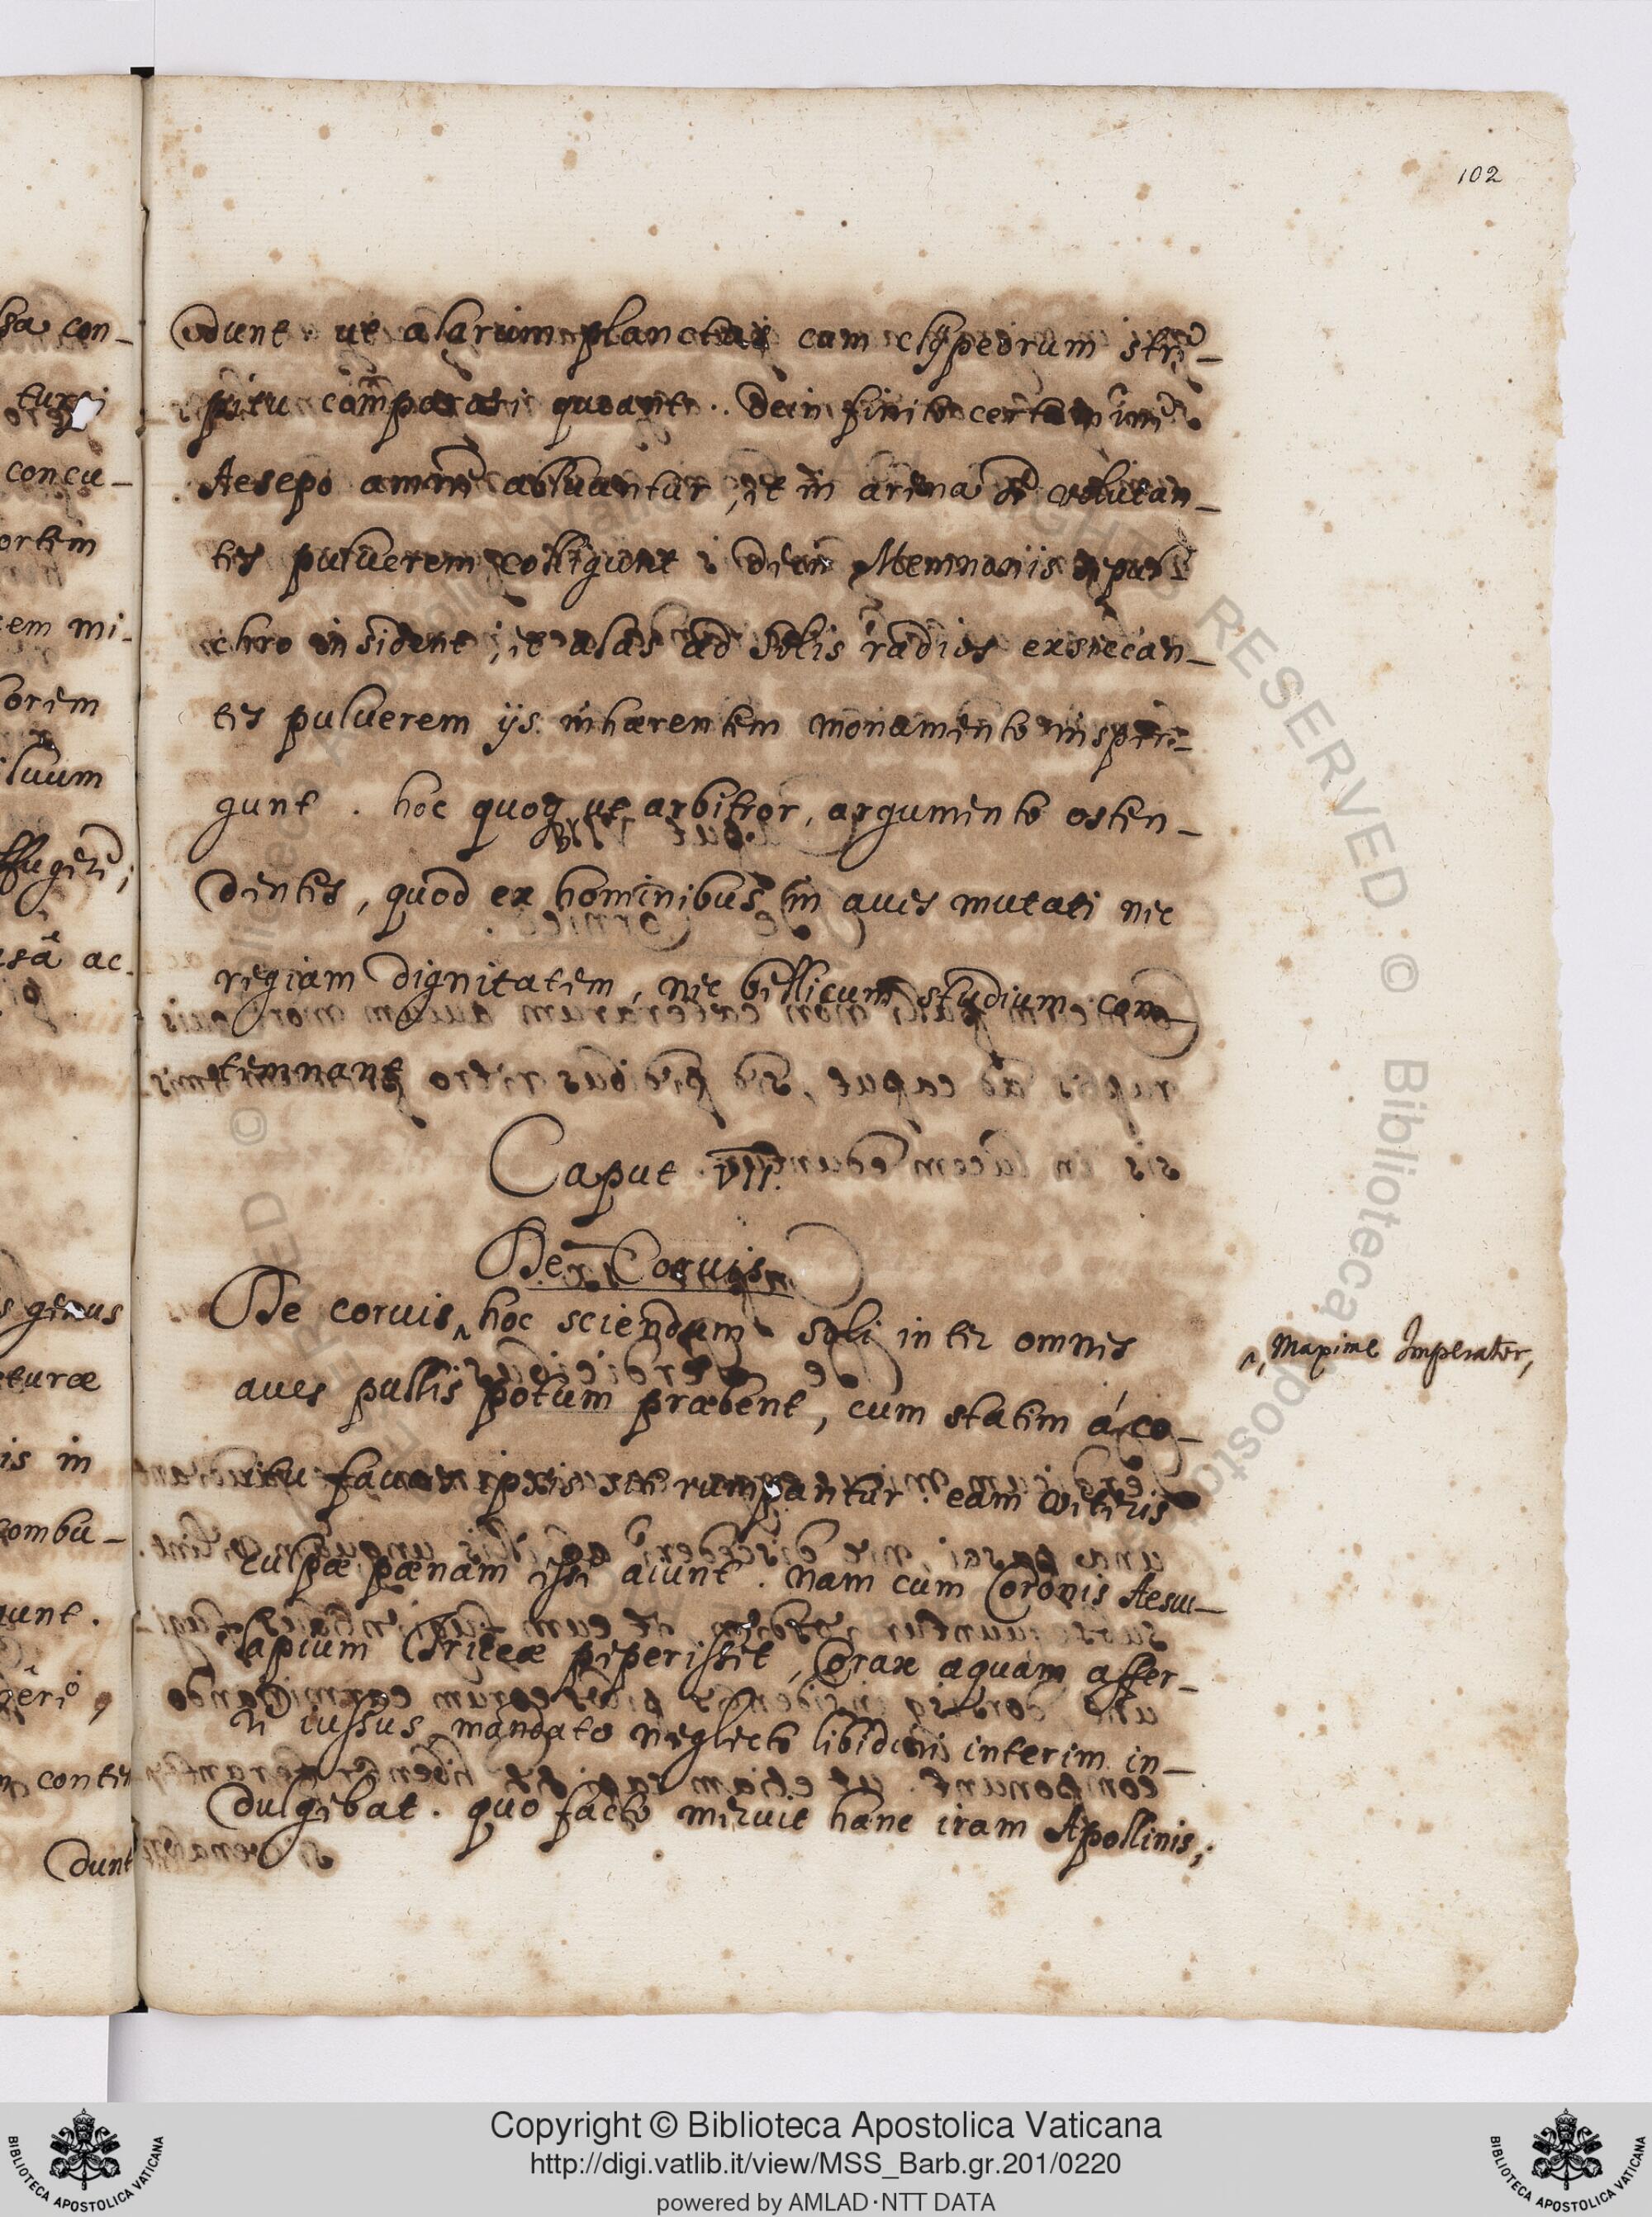 102
sa con-
dunt ut alarum planctus cum clypeorum stre-
pitu comparari queant. dein finito certamine
Aesepo amne abluuntur, et in arena se volutan-
tes puluerem colligunt; dein Memnoniis sepul-
chro insident, et alas ad solis radios exsiccan-
tes puluerem ijs inhærentem monumento insper-
gunt. hoc quoq, ut arbitror, argumento osten-
dentes, quod ex hominibus in aues mutati nec
regiam dignitatem, nec bellicum studium con
temnant
Caput VII.
De Coruis
De coruis ‸ hoc sciendum soli inter omnes
‸, Maxime Imperator,
aues pullis potum præbent, cum statim á co-
itu fauces ipsis rumpantur. eam veteris
culpæ pœnam isse aiunt. nam cum Coronis Aescu-
lapium Triccæ peperisset, Corax aquam affer-
re iussus, mandato neglecto libidini interim in-
dulgebat. quo facto meruit hanc iram Apollinis,
concu-
ortem
cem mi-
orem
luum
ac-
genus
turæ
is in
combu-
gunt.
conten
dunt
Copyright © Biblioteca Apostolica Vaticana
http://digi.vatlib.it/view/MSS_Barb.gr.201/0220
powered by AMLAD·NTT DATA
BIBLIOTECA APOSTOLICA VATICANA
BIBLIOTECA APOSTOLICA VATICANA